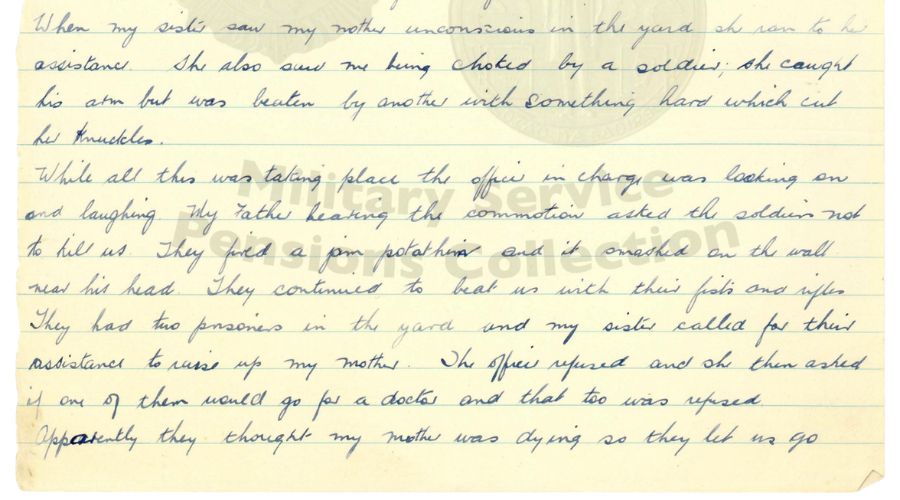 When my sister saw my mother unconscious in the yard she ran to her
assistance. She also saw me being choked by a soldier; she caught
his arm but was beaten by another with something hard which cut
her knuckles.
While all this was taking place the officer in charge was looking on
and laughing. My Father hearing the commotion asked the soldiers not
to kill us. They fired a jam pot at him and it smashed on the wall
near his head. They continued to beat us with their fists and rifles
They had two prisoners in the yard and my sister called for their
assistance to raise up my mother. The officer refused and she then asked
if one of them would go for a doctor and that too was refused.
Apparently they thought my mother was dying so they let us go
Military Service
Pensions Collection